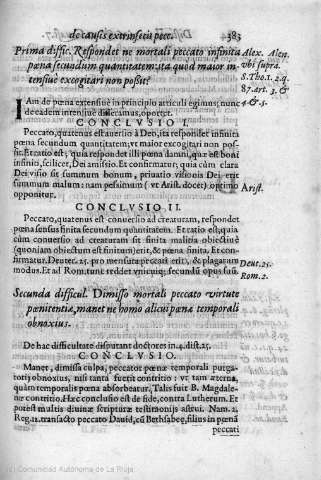 de causis extrinsecis pecc. 383
Prima diffic. Respondet ne mortali peccato infinita
pœna secundum quantitatem, ita quod maior in-
tensiuè excogitari non possit?
Alex. Alen.
vbi supra.
S. Tho. 1. 2. q.
87. art. 3. &
4. & 5.
IAm de pœna extensiuè in principio articuli egimus; nunc
de eadem intensiuè differamus, oportet.
CONCLVSIO I.
Peccato, quatenus est auersio à Deo, ita respondet infinita
pœna secundum quantitatem; vt maior excogitari non pos-
sit. Et ratio est; quia respondet illi pœna damni, quæ est boni
infiniti, scilicet, Dei amissio. Et confirmatur; quia cùm clara
Dei visio sit summum bonum, priuatio visionis Dei erit
summum malum: nam pessimum (vt Arist. docet) optimo
opponitur.
Arist.
CONCLVSIO II.
Peccato, quatenus est conuersio ad creaturam, respondet
pœna sensus finita secundum quantitatem. Et ratio est, quia
cùm conuersio ad creaturam sit finita malitia obiectiuè
(quoniam obiectum est finitum) erit & pœna finita. Et con-
firmatur. Deuter. 25. pro mensura peccati erit, & plagarum
modus. Et ad Rom. tunc reddet vnicuiq; secundũ opus suũ.
Deut. 25.
Rom. 2.
Secunda difficul. Dimisso mortali peccato virtute
pœnitentiæ, manet ne homo alicui pœnæ temporali
obnoxius.
De hac difficultate disputant doctores in 4. dist. 25.
CONCLVSIO.
Manet, dimissa culpa, peccator pœnæ temporali purga-
torij obnoxius, nisi tanta fuerit contritio: vt tam æterna,
quàm temporalis pœna absorbeatur. Talis fuit B. Magdale-
næ contritio. Hæc conclusio est de fide, contra Lutherum. Et
potest multis diuinæ scripturæ testimonijs astrui. Nam 2.
Reg. 12. transacto peccato Dauid, cũ Bethsabee, filius in pœnã
peccati
Comunidad Autónoma de La Rioja